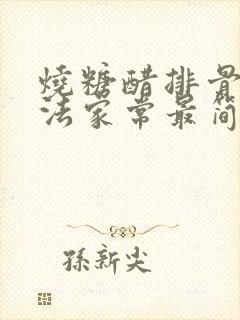 燒糖醋排骨
法家常最简
孫新尖